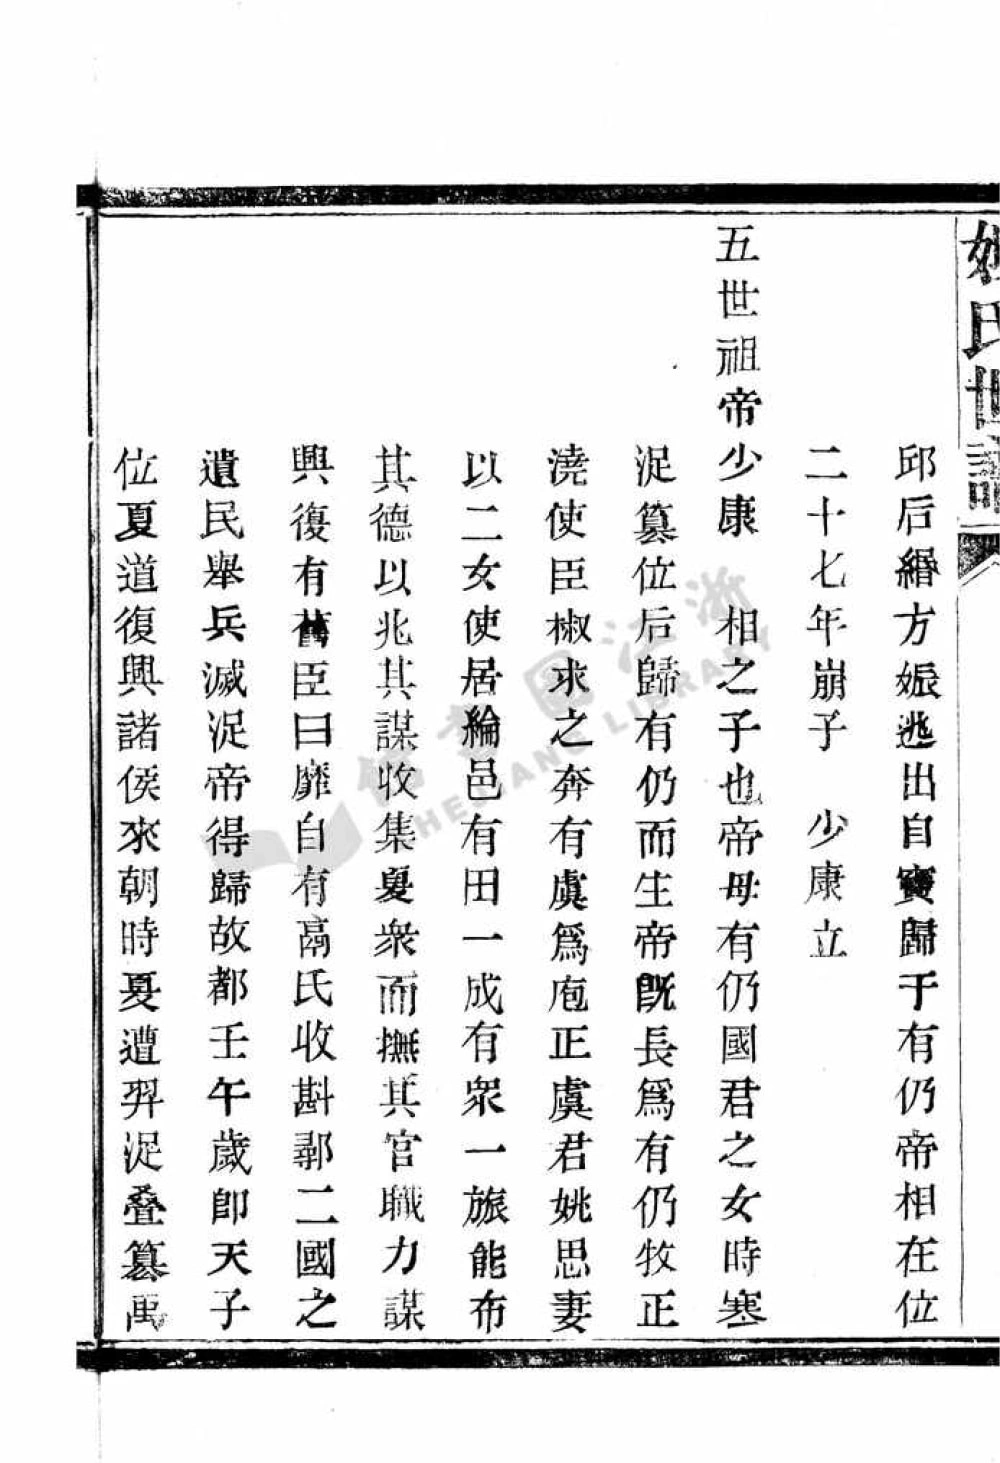 姒氏世譜
邱后緡方娠逃出自竇歸于有仍帝相在位
二十七年崩子 少康立
五世祖帝少康 相之子也帝母有仍國君之女時寒
浞篡位后歸有仍而生帝旣長爲有仍牧正
澆使臣椒求之奔有虞爲庖正虞君姚思妻
以二女使居綸邑有田一成有衆一旅能布
其德以兆其謀收集夏衆而撫其官職力謀
興復有舊臣曰靡自有鬲氏收斟鄩二國之
遺民舉兵滅浞帝得歸故都壬午歲卽天子
位夏道復興諸侯來朝時夏遭羿浞叠篡禹
浙江圖書館
ZHEJIANG LIBRARY